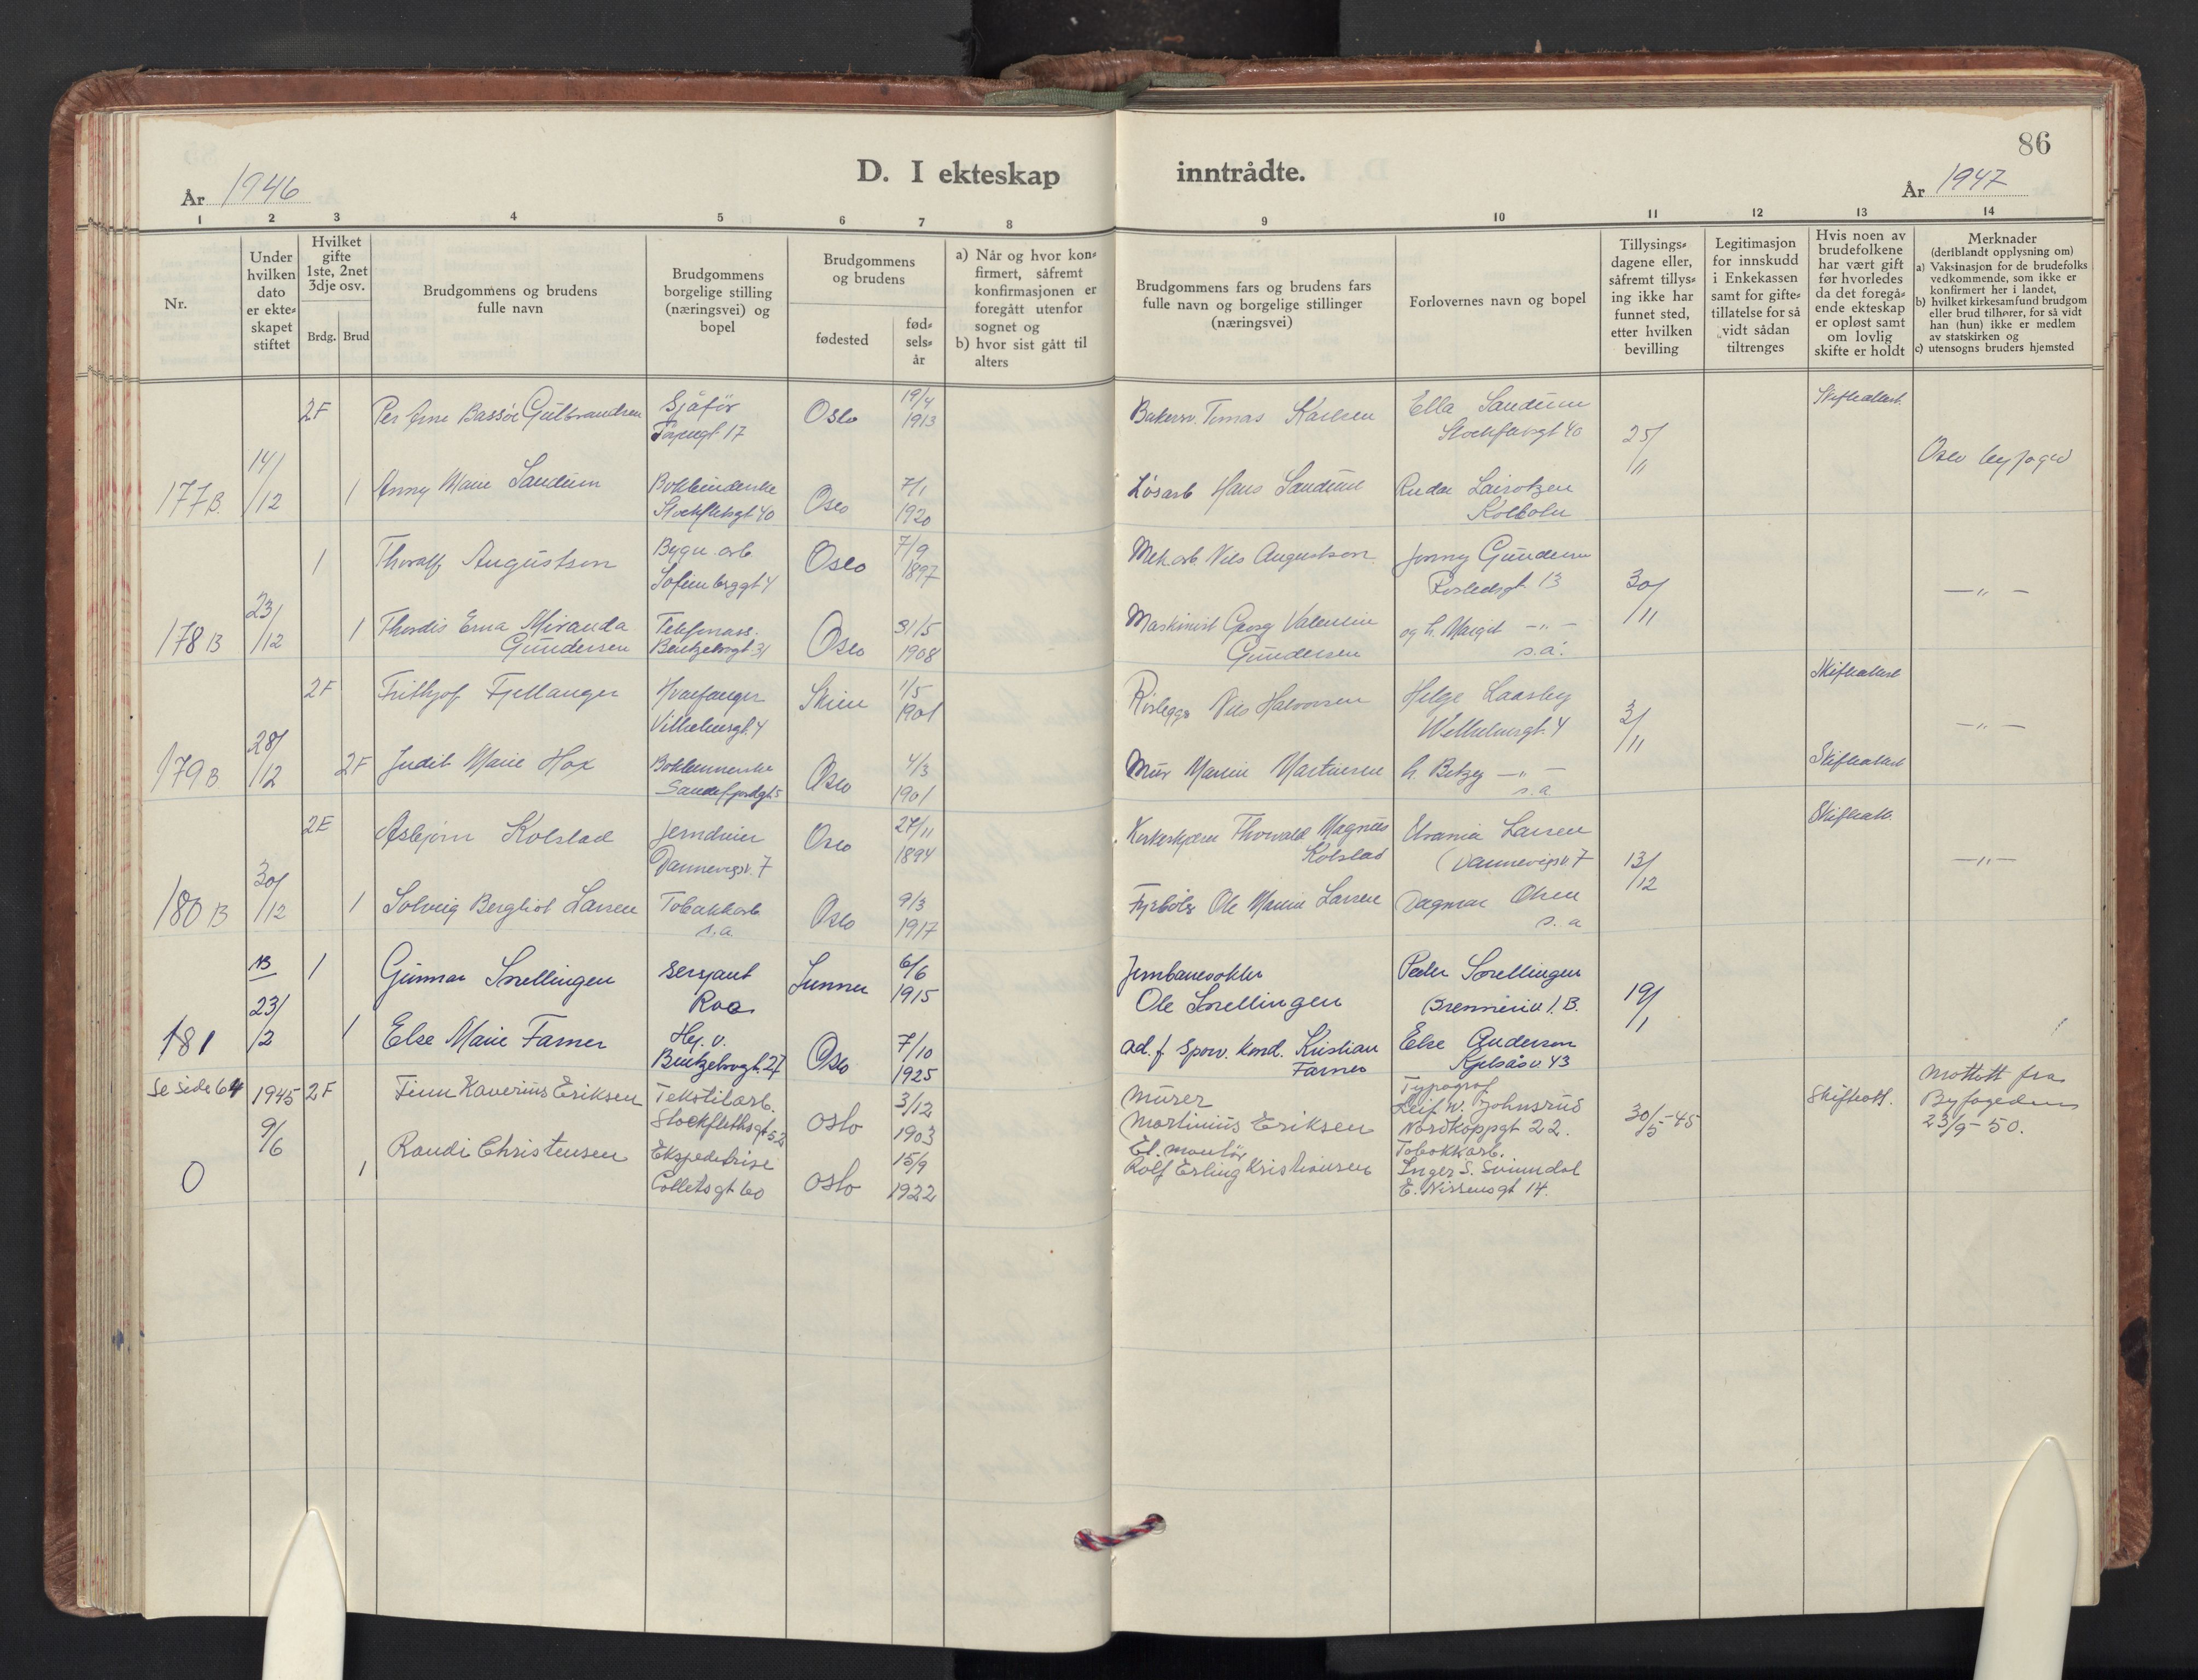 86
D. I ekteskap inntrådte.
År 1946
År 1947
1 2 3 4 5 6 7 8 9 10 11 12 13 14
Nr.
Under hvilken dato er ekte-skapet stiftet
Hvilket gifte 1ste, 2net 3dje osv.
Brdg. Brud
Brudgommens og brudens fulle navn
Brudgommens borgelige stilling (næringsvei) og bopel
Brudgommens og brudens
fødested
fød-sels-år
a) Når og hvor kon-firmert, såfremt konfirmasjonen er foregått utenfor sognet og
b) hvor sist gått til alters
Brudgommens fars og brudens fars fulle navn og borgelige stillinger (næringsvei)
Forlovernes navn og bopel
Tillysings-dagene eller, såfremt tillys-ing ikke har funnet sted, etter hvilken bevilling
Legitimasjon for innskudd i Enkekassen samt for gifte-tillatelse for så vidt sådan tiltrenges
Hvis noen av brudefolkene har vært gift før hvorledes da det foregå-ende ekteskap er opløst samt om lovlig skifte er holdt
Merknader (deriblandt opplysning om)
a) Vaksinasjon for de brudefolks vedkommende, som ikke er konfirmert her i landet,
b) hvilket kirkesamfund brudgom eller brud tilhører, for så vidt han (hun) ikke er medlem av statskirken og
c) utensogns bruders hjemsted
2F Per Arne Bassøe Gulbrandsen Sjåfør Oslo 19/4 1913 Tomas Karlsen Ella Sandum Skifteattest
17 Stockflethsgt 40 25/11
177B. 14/12 1 Anny Marie Sandum Oslo 7/1 1920 Løsarb Hans Sandum Oslo byfoged
Stockflethsgt 40
1 Thoralf Augustson Bygn. arb Oslo 7/9 1897 Mek arb Nils Augustson Jonny Gundersen
Sofienberggt 4 13 30/11 — " —
178B 23/12 1 Thordis Erna Miranda Telefonass. Oslo 31/5 1908 Maskinist Georg Valentin og h. Margit — " —
Gundersen Bentzebrogt 31 Gundersen s.a.
2F Frithjof Fjellanger Hvalfanger Skien 1/5 1901 Rørlegger Nils Halvorsen Helge Laasby Skifteattest
Vilhelmsgt. 4 Wilhelmsgt. 4 3/11 — " —
179B 28/12 2F Judit Marie Hox Oslo 4/3 1901 Mur Martin Martinsen h. Betzy — " — Skifteattest
Sandefjordgt 5 s.a
2F Asbjørn Kolstad Oslo 27/11 1894 Thorvald Magnus Larsen Skifteatt.
Dannevigsv. 7 Kolstad Dannevigsv 7 13/12 — " —
180B 30/12 1 Solveig Bergliot Larsen Tobakkarb Oslo 9/3 1917 Fyrbøter Ole Martin Larsen Dagmar Olsen
s.a. s. a
B 1 Gunnar Snellingen sersjant Lunner 6/6 1915 Peder Snellingen
Roa Ole Snellingen 1.B. 19/1
181 23/2 1 Else Marie Farner Oslo 7/10 1925 ad. f. sporv. kond. Kristian Else Anderson
Bentzebrogt. 27 Farner Kjelsåsv. 43
Se side 64 1945 2F Finn Xaverius Eriksen Tekstilarb. Oslo 3/12 1903 Murer Typograf Skifteatt. Mottatt fra
9/6 Stockflethsgt 52 Martinius Eriksen Leif W. Johnsrud 30/5-45 Byfogeden
Nordkappgt 22. 23/9-50.
0 1 Randi Christensen Ekspeditrise Oslo 15/9 1922 El. montør Tobakkarb.
Colletsgt 60 Rolf Erling Kristiansen Inger S. Svinndal
E. Nissensgt 14.